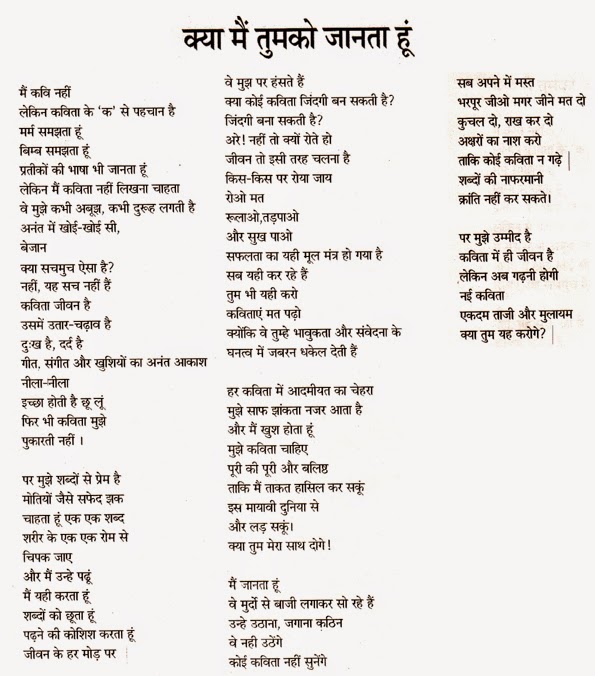 क्या मैं तुमको जानता हूं
मैं कवि नहीं
लेकिन कविता के 'क' से पहचान है
मर्म समझता हूं
बिम्ब समझता हूं
प्रतीकों की भाषा भी जानता हूं
लेकिन मैं कविता नहीं लिखना चाहता
वे मुझे कभी अबूझ, कभी दुरूह लगती है
अनंत में खोई-खोई सी,
बेजान
क्या सचमुच ऐसा है?
नहीं, यह सच नहीं हैं
कविता जीवन है
उसमें उतार-चढ़ाव है
दुःख है, दर्द है
गीत, संगीत और खुशियों का अनंत आकाश
नीला-नीला
इच्छा होती है छू लूं
फिर भी कविता मुझे
पुकारती नहीं ।
पर मुझे शब्दों से प्रेम है
मोतियों जैसे सफेद झक
चाहता हूं एक एक शब्द
शरीर के एक एक रोम से
चिपक जाए
और मैं उन्हे पढूं
मैं यही करता हूं
शब्दों को छूता हूं
पढ़ने की कोशिश करता हूं
जीवन के हर मोड़ पर
वे मुझ पर हंसते हैं
क्या कोई कविता जिंदगी बन सकती है?
जिंदगी बना सकती है?
अरे! नहीं तो क्यों रोते हो
जीवन तो इसी तरह चलना है
किस-किस पर रोया जाय
रोओ मत
रूलाओ,तड़पाओ
और सुख पाओ
सफलता का यही मूल मंत्र हो गया है
सब यही कर रहे हैं
तुम भी यही करो
कविताएं मत पढ़ो
क्योंकि वे तुम्हे भावुकता और संवेदना के
घनत्व में जबरन धकेल देती हैं
हर कविता में आदमीयत का चेहरा
मुझे साफ झांकता नजर आता है
और मैं खुश होता हूं
मुझे कविता चाहिए
पूरी की पूरी और बलिष्ठ
ताकि मैं ताकत हासिल कर सकूं
इस मायावी दुनिया से
और लड़ सकूं।
क्या तुम मेरा साथ दोगे!
मैं जानता हूं
वे मुर्दो से बाजी लगाकर सो रहे हैं
उन्हे उठाना, जगाना कठिन
वे नही उठेंगे
कोई कविता नहीं सुनेंगे
सब अपने में मस्त
भरपूर जीओ मगर जीने मत दो
कुचल दो, राख कर दो
अक्षरों का नाश करो
ताकि कोई कविता न गढ़े
शब्दों की नाफरमानी
क्रांति नहीं कर सकते।
पर मुझे उम्मीद है
कविता में ही जीवन है
लेकिन अब गढ़नी होगी
नई कविता
एकदम ताजी और मुलायम
क्या तुम यह करोगे?